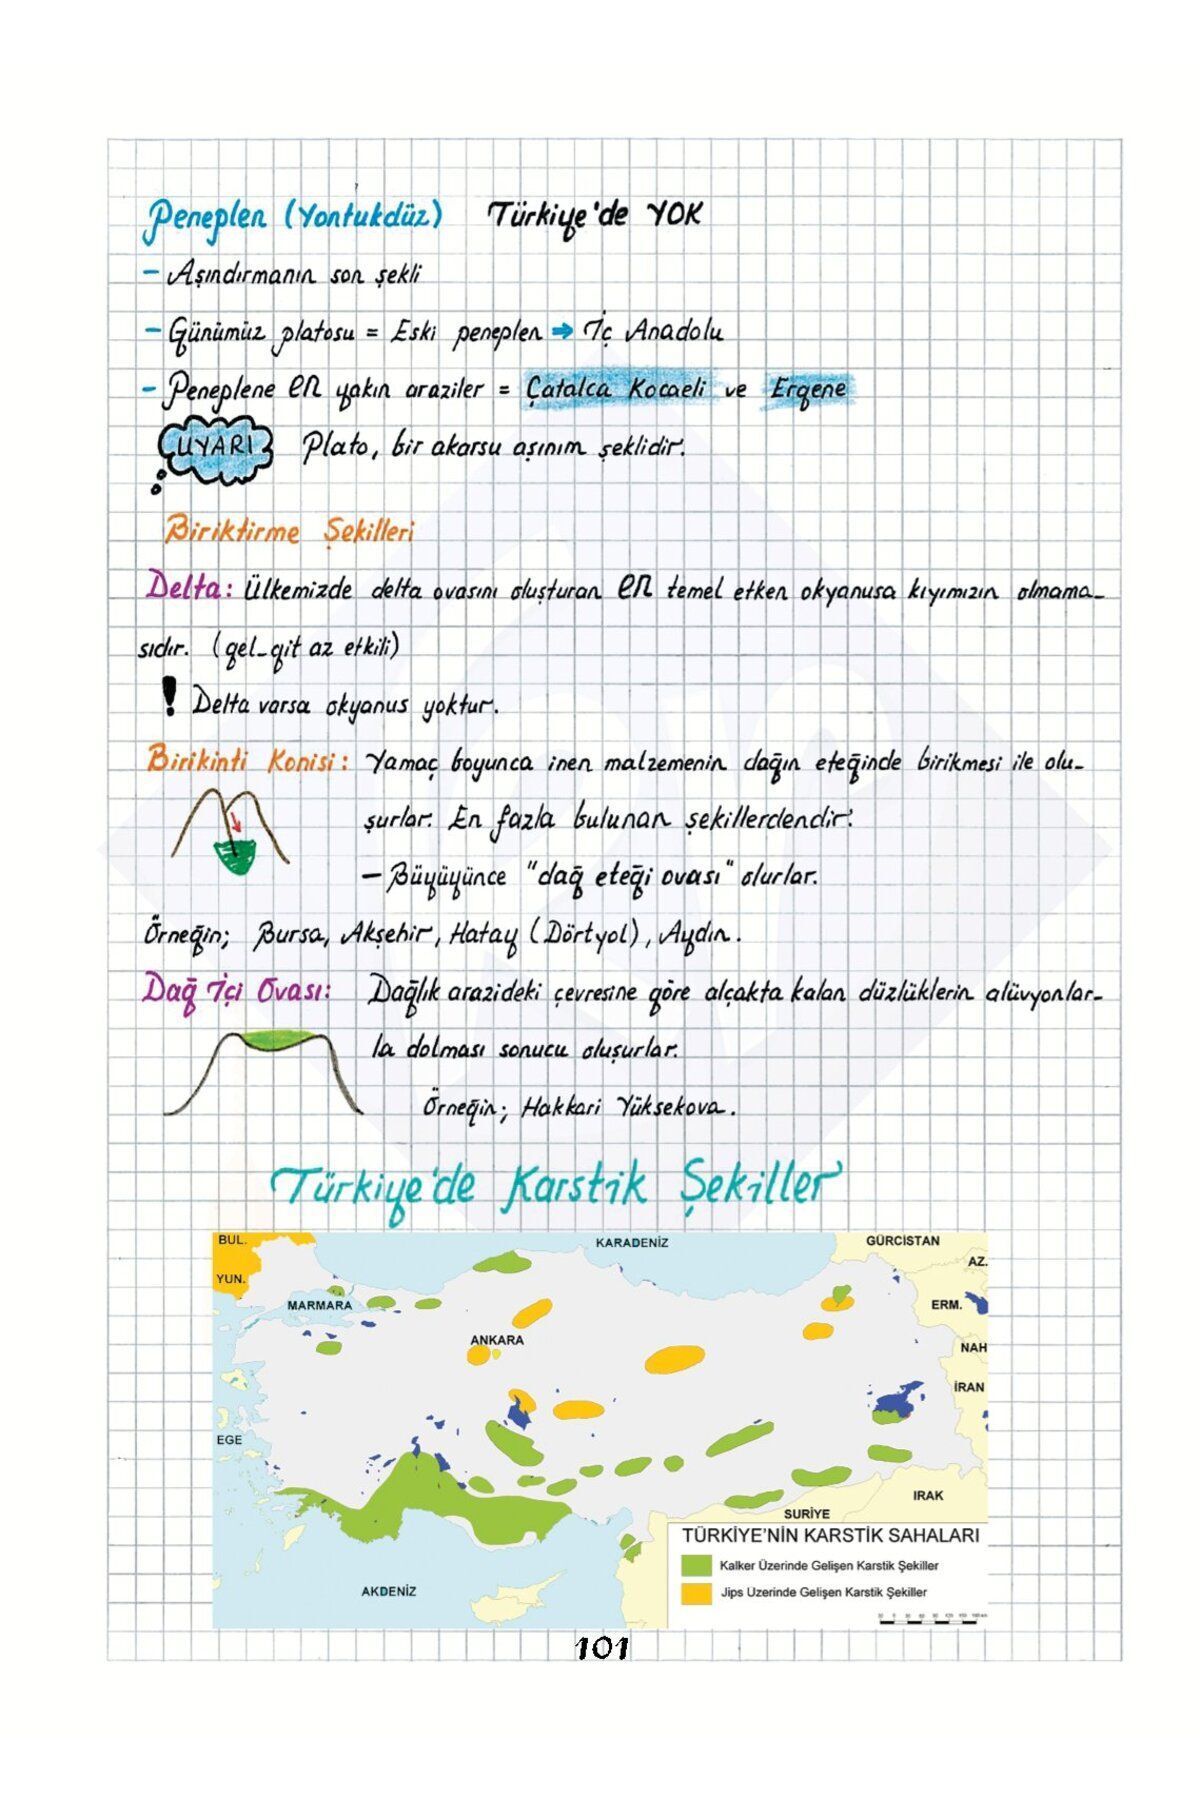 Peneplen (Yontukdüz) Türkiye'de YOK
- Aşındırmanın son şekli
- Günümüz platosu = Eski peneplen ⇒ İç Anadolu
- Peneplene en yakın araziler = Çatalca Kocaeli ve Ergene
UYARI Plato, bir akarsu aşınım şeklidir.
Biriktirme Şekilleri
Delta: Ülkemizde delta ovasını oluşturan en temel etken okyanusa kıyımızın olmama-
sıdır. (gel-git az etkili)
! Delta varsa okyanus yoktur.
Birikinti Konisi: Yamaç boyunca inen malzemenin dağın eteğinde birikmesi ile olu-
şurlar. En fazla bulunan şekillerdendir.
- Büyüyünce "dağ eteği ovası" olurlar.
Örneğin; Bursa, Akşehir, Hatay (Dörtyol), Aydın.
Dağ İçi Ovası: Dağlık arazideki çevresine göre alçakta kalan düzlüklerin alüvyonlar-
la dolması sonucu oluşurlar.
Örneğin; Hakkari Yüksekova.
Türkiye'de Karstik Şekiller
BUL.
KARADENİZ
GÜRCİSTAN
AZ.
YUN.
MARMARA
ERM.
ANKARA
NAH
İRAN
EGE
IRAK
SURİYE
AKDENİZ
TÜRKİYE'NİN KARSTİK SAHALARI
Kalker Üzerinde Gelişen Karstik Şekiller
Jips Uzerinde Gelişen Karstik Şekiller
101